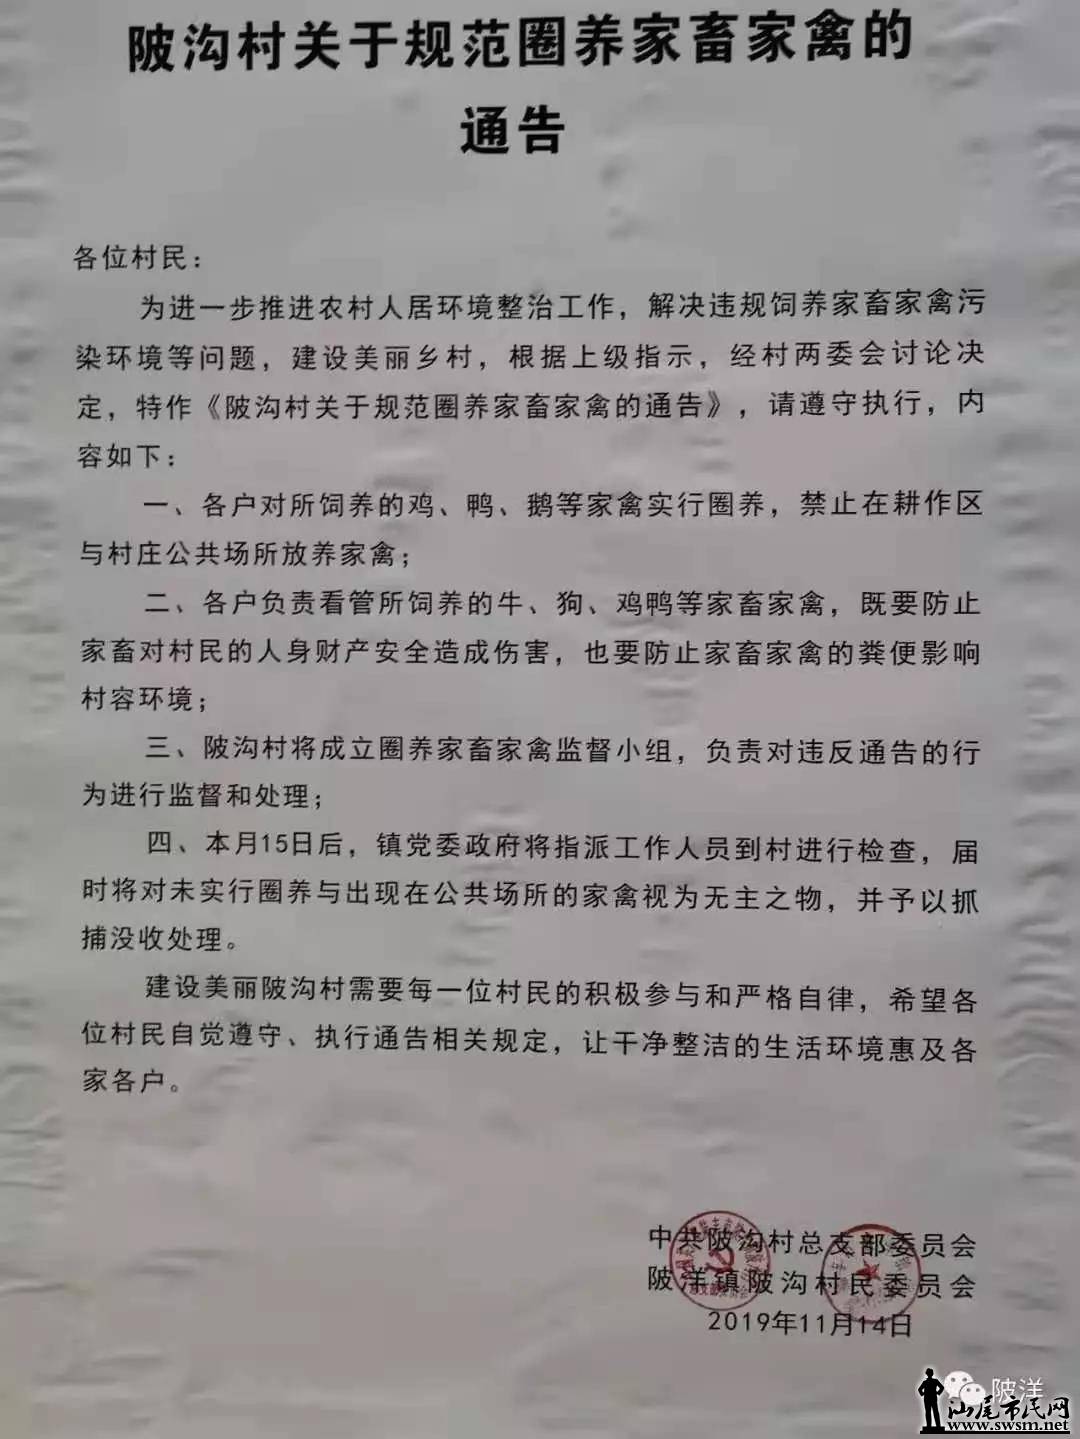 陂沟村关于规范圈养家畜家禽的
通告
各位村民：
为进一步推进农村人居环境整治工作，解决违规饲养家畜家禽污
染环境等问题，建设美丽乡村，根据上级指示，经村两委会讨论决
定，特作《陂沟村关于规范圈养家畜家禽的通告》，请遵守执行，内
容如下：
一、各户对所饲养的鸡、鸭、鹅等家禽实行圈养，禁止在耕作区
与村庄公共场所放养家禽；
二、各户负责看管所饲养的牛、狗、鸡鸭等家畜家禽，既要防止
家畜对村民的人身财产安全造成伤害，也要防止家畜家禽的粪便影响
村容环境；
三、陂沟村将成立圈养家畜家禽监督小组，负责对违反通告的行
为进行监督和处理；
四、本月15日后，镇党委政府将指派工作人员到村进行检查，届
时将对未实行圈养与出现在公共场所的家禽视为无主之物，并予以抓
捕没收处理。
建设美丽陂沟村需要每一位村民的积极参与和严格自律，希望各
位村民自觉遵守、执行通告相关规定，让干净整洁的生活环境惠及各
家各户。
中共陂沟村总支部委员会
陂洋镇陂沟村民委员会
2019年11月14日
陂洋
汕尾市民网
www.swsm.net